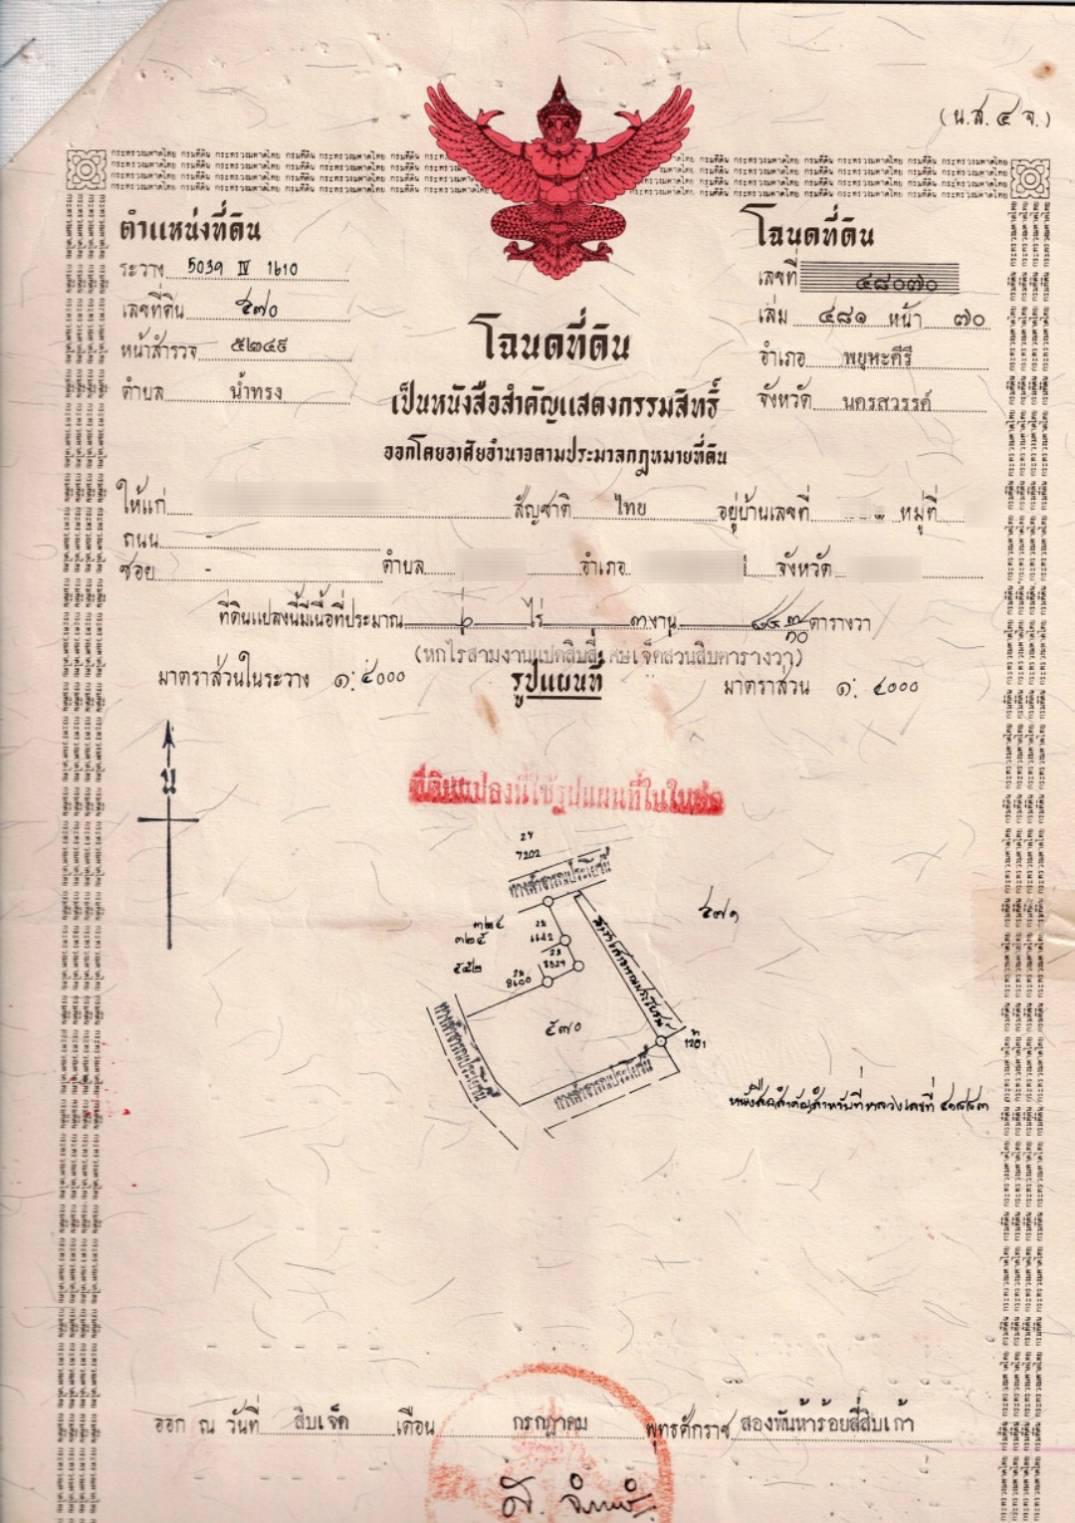 (น.ส. ๔ จ.)
ตำแหน่งที่ดิน
ระวาง 5039 IV 1610
เลขที่ดิน ๕๗๐
หน้าสำรวจ ๕๒๔๙
ตำบล น้ำทรง
โฉนดที่ดิน
เลขที่ ๔๘๐๗๐
เล่ม ๔๘๑ หน้า ๗๐
อำเภอ พยุหะคีรี
จังหวัด นครสวรรค์
โฉนดที่ดิน
เป็นหนังสือสำคัญแสดงกรรมสิทธิ์
ออกโดยอาศัยอำนาจตามประมวลกฎหมายที่ดิน
ให้แก่ สัญชาติ ไทย อยู่บ้านเลขที่ หมู่ที่
ถนน -
ซอย - ตำบล อำเภอ จังหวัด
ที่ดินแปลงนี้มีเนื้อที่ประมาณ ๖ ไร่ ๓ งาน ๘๔ ๗/๑๐ ตารางวา
(หกไร่สามงานแปดสิบสี่เศษเจ็ดส่วนสิบตารางวา)
มาตราส่วนในระวาง ๑:๔๐๐๐ รูปแผนที่ มาตราส่วน ๑: ๔๐๐๐
น
ที่ดินแปลงนี้ใช้รูปแผนที่ในใบต่อ
7202
ทางสาธารณประโยชน์
๕๗๑
๓๒๔
๓๒๕
๕๗๐
ทางสาธารณประโยชน์
ทางสาธารณประโยชน์
ออก ณ วันที่ สิบเจ็ด เดือน กรกฎาคม พุทธศักราช สองพันห้าร้อยสี่สิบเก้า